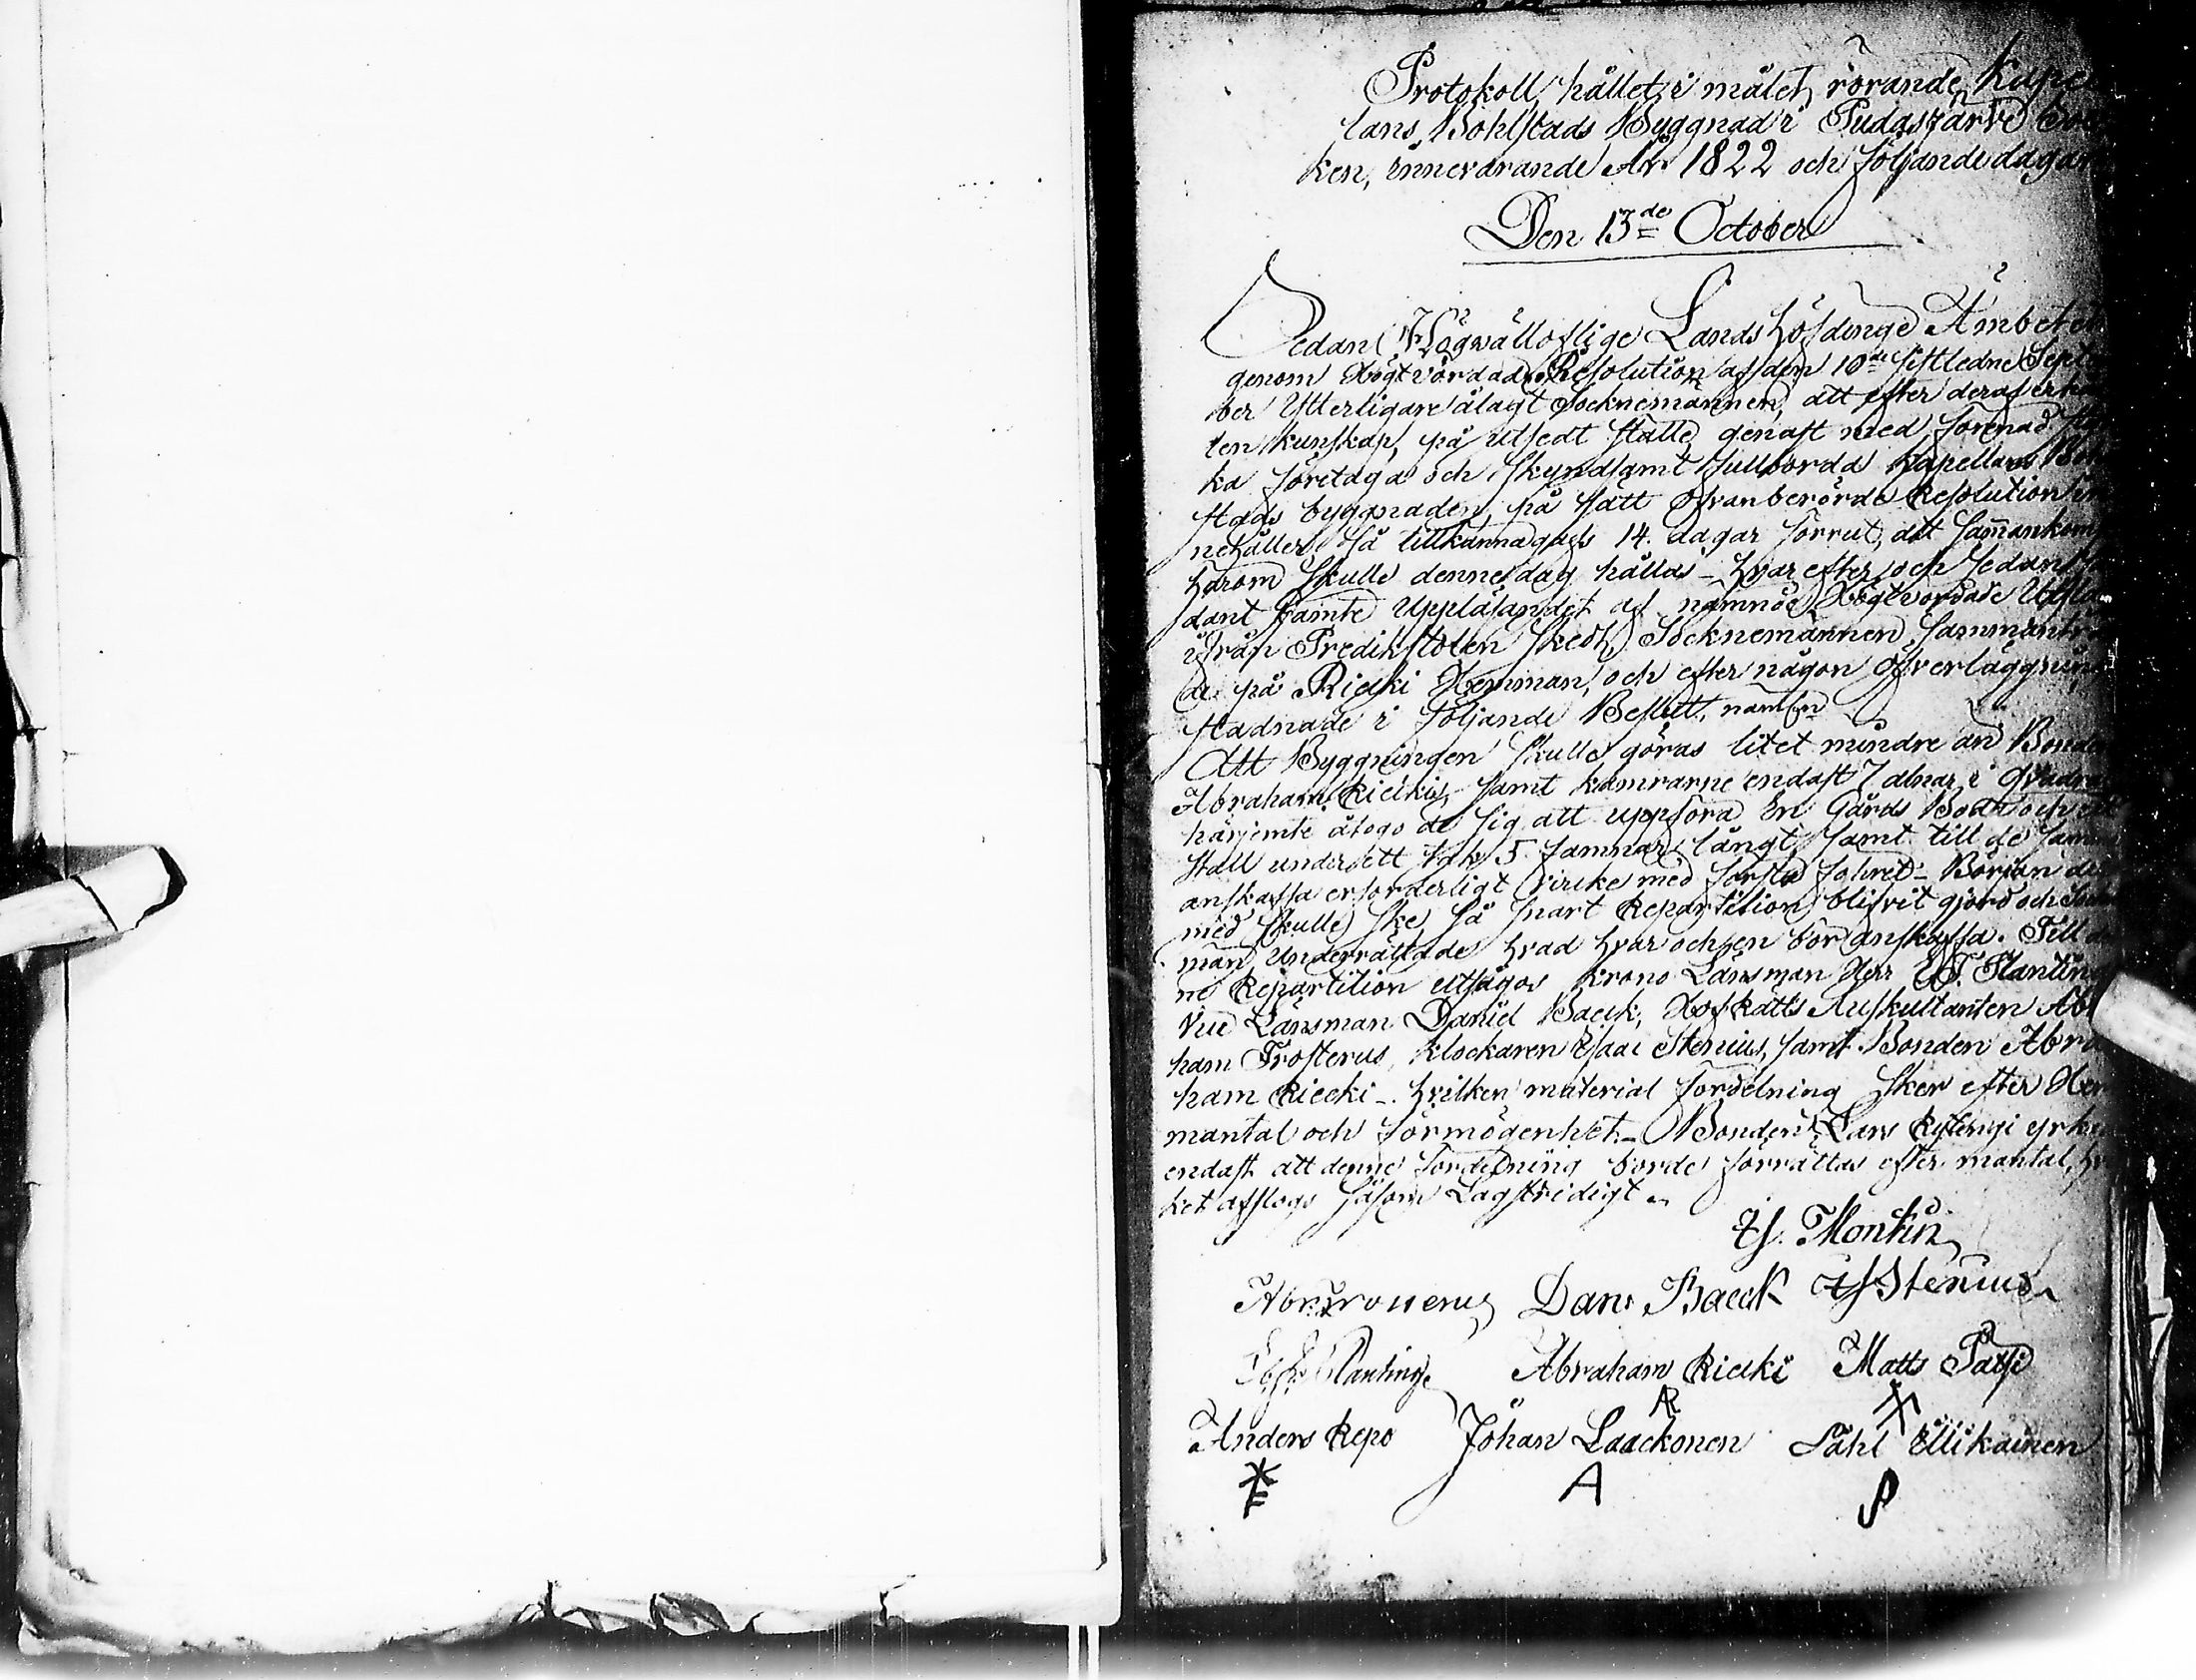 Protokoll, hållet i målet, rörande Kape
lans Bohlstads Byggnad i Pudasjärvi
ken, innevarande År 1822 och följande dagar
Den 13de October
Sedan Högvälloflige Lands höfdinge Ämbetet
genom Högtvördade Resolution af den 10de sistledne Sept
ber Ytterligare ålagt Socknemännen, att efter deraf erhå
len kunskap, på utsedt ställe genast med förenad
ka företaga och skyndsamt fullborda Kapellans Bohl
stads byggnaden, på sätt ofvanberörde Resolution in
nehåller så tillkännagafs 14. dagar förrut, att sam̄ankom
härom skulle denne dag hållas - hvarefter och sedan så
dant jämte Uppläsandet af nämnde Högtvördade Utsla
ifrån Predikstolen skedt, Socknemännen samman
de på Riecki Hemman, och efter någon öfverläggning
stadnade i följande Beslut, naml:n
Att Byggningen skulle göras litet mindre än Bonden
Abraham Rieckis, samt kamrarne endast 7 alnar i Qvadrat
härjemte åtogo de sig att uppföra En Gårds Boda och
Stall under ett tak 5 famnar långt, samt till de
anskaffa erforderligt virke med första föhret - Början der
med skulle ske så snart Repartition blifvit gjord och
män Underrättade hvad hvar och en bör anskaffa. Till
ne Repartition utsågos Krono Länsman Herr Planting
Vice Länsman Daniel Baeck, Hofrätts Auskultanten Abra
ham Frosterus, Klockaren Isaac Stenius, samt Bonden Abra
ham Riecki -. hvilken material fördelning sker efter Hem
mantal och förmögenhet - Bonden Lars yrka
endast att denne fördelning borde förrättas efter mantal, hvil
ket afslogs såsom Lagstridigt -
Is. Montin
Abr: Frosterus Dan: Baeck Is Stenius
Planting Abraham Riecki Matts
AR
Anders Repo Johan Laackonen Påhl Illikainen
A